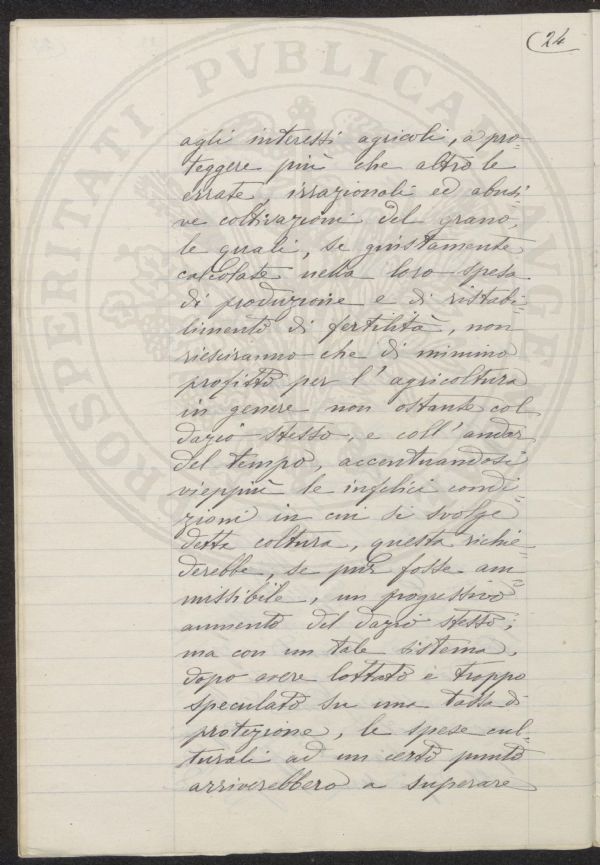 24
agli interessi agricoli, a pro=
teggere più che altro le
errate, irrazionali ed abusi=
ve coltivazioni del grano,
le quali, se giustamente
calcolate nella loro spesa
di produzione e di ristabi=
limento di fertilità, non
riesciranno che di minimo
profitto per l'agricoltura
in genere non ostante col
dazio stesso, e coll'andar
del tempo, accentuandosi
vieppiù le infelici condi=
zioni in cui si svolge
detta coltura, questa richie=
derebbe, se pur fosse am=
missibile, un progressivo
aumento del dazio stesso;
ma con un tale sistema,
dopo avere lottato e troppo
speculato su una tassa di
protezione, le spese cul=
turali ad un certo punto
arriverebbero a superare
PROSPERITATI PVBLICAE AVGEN